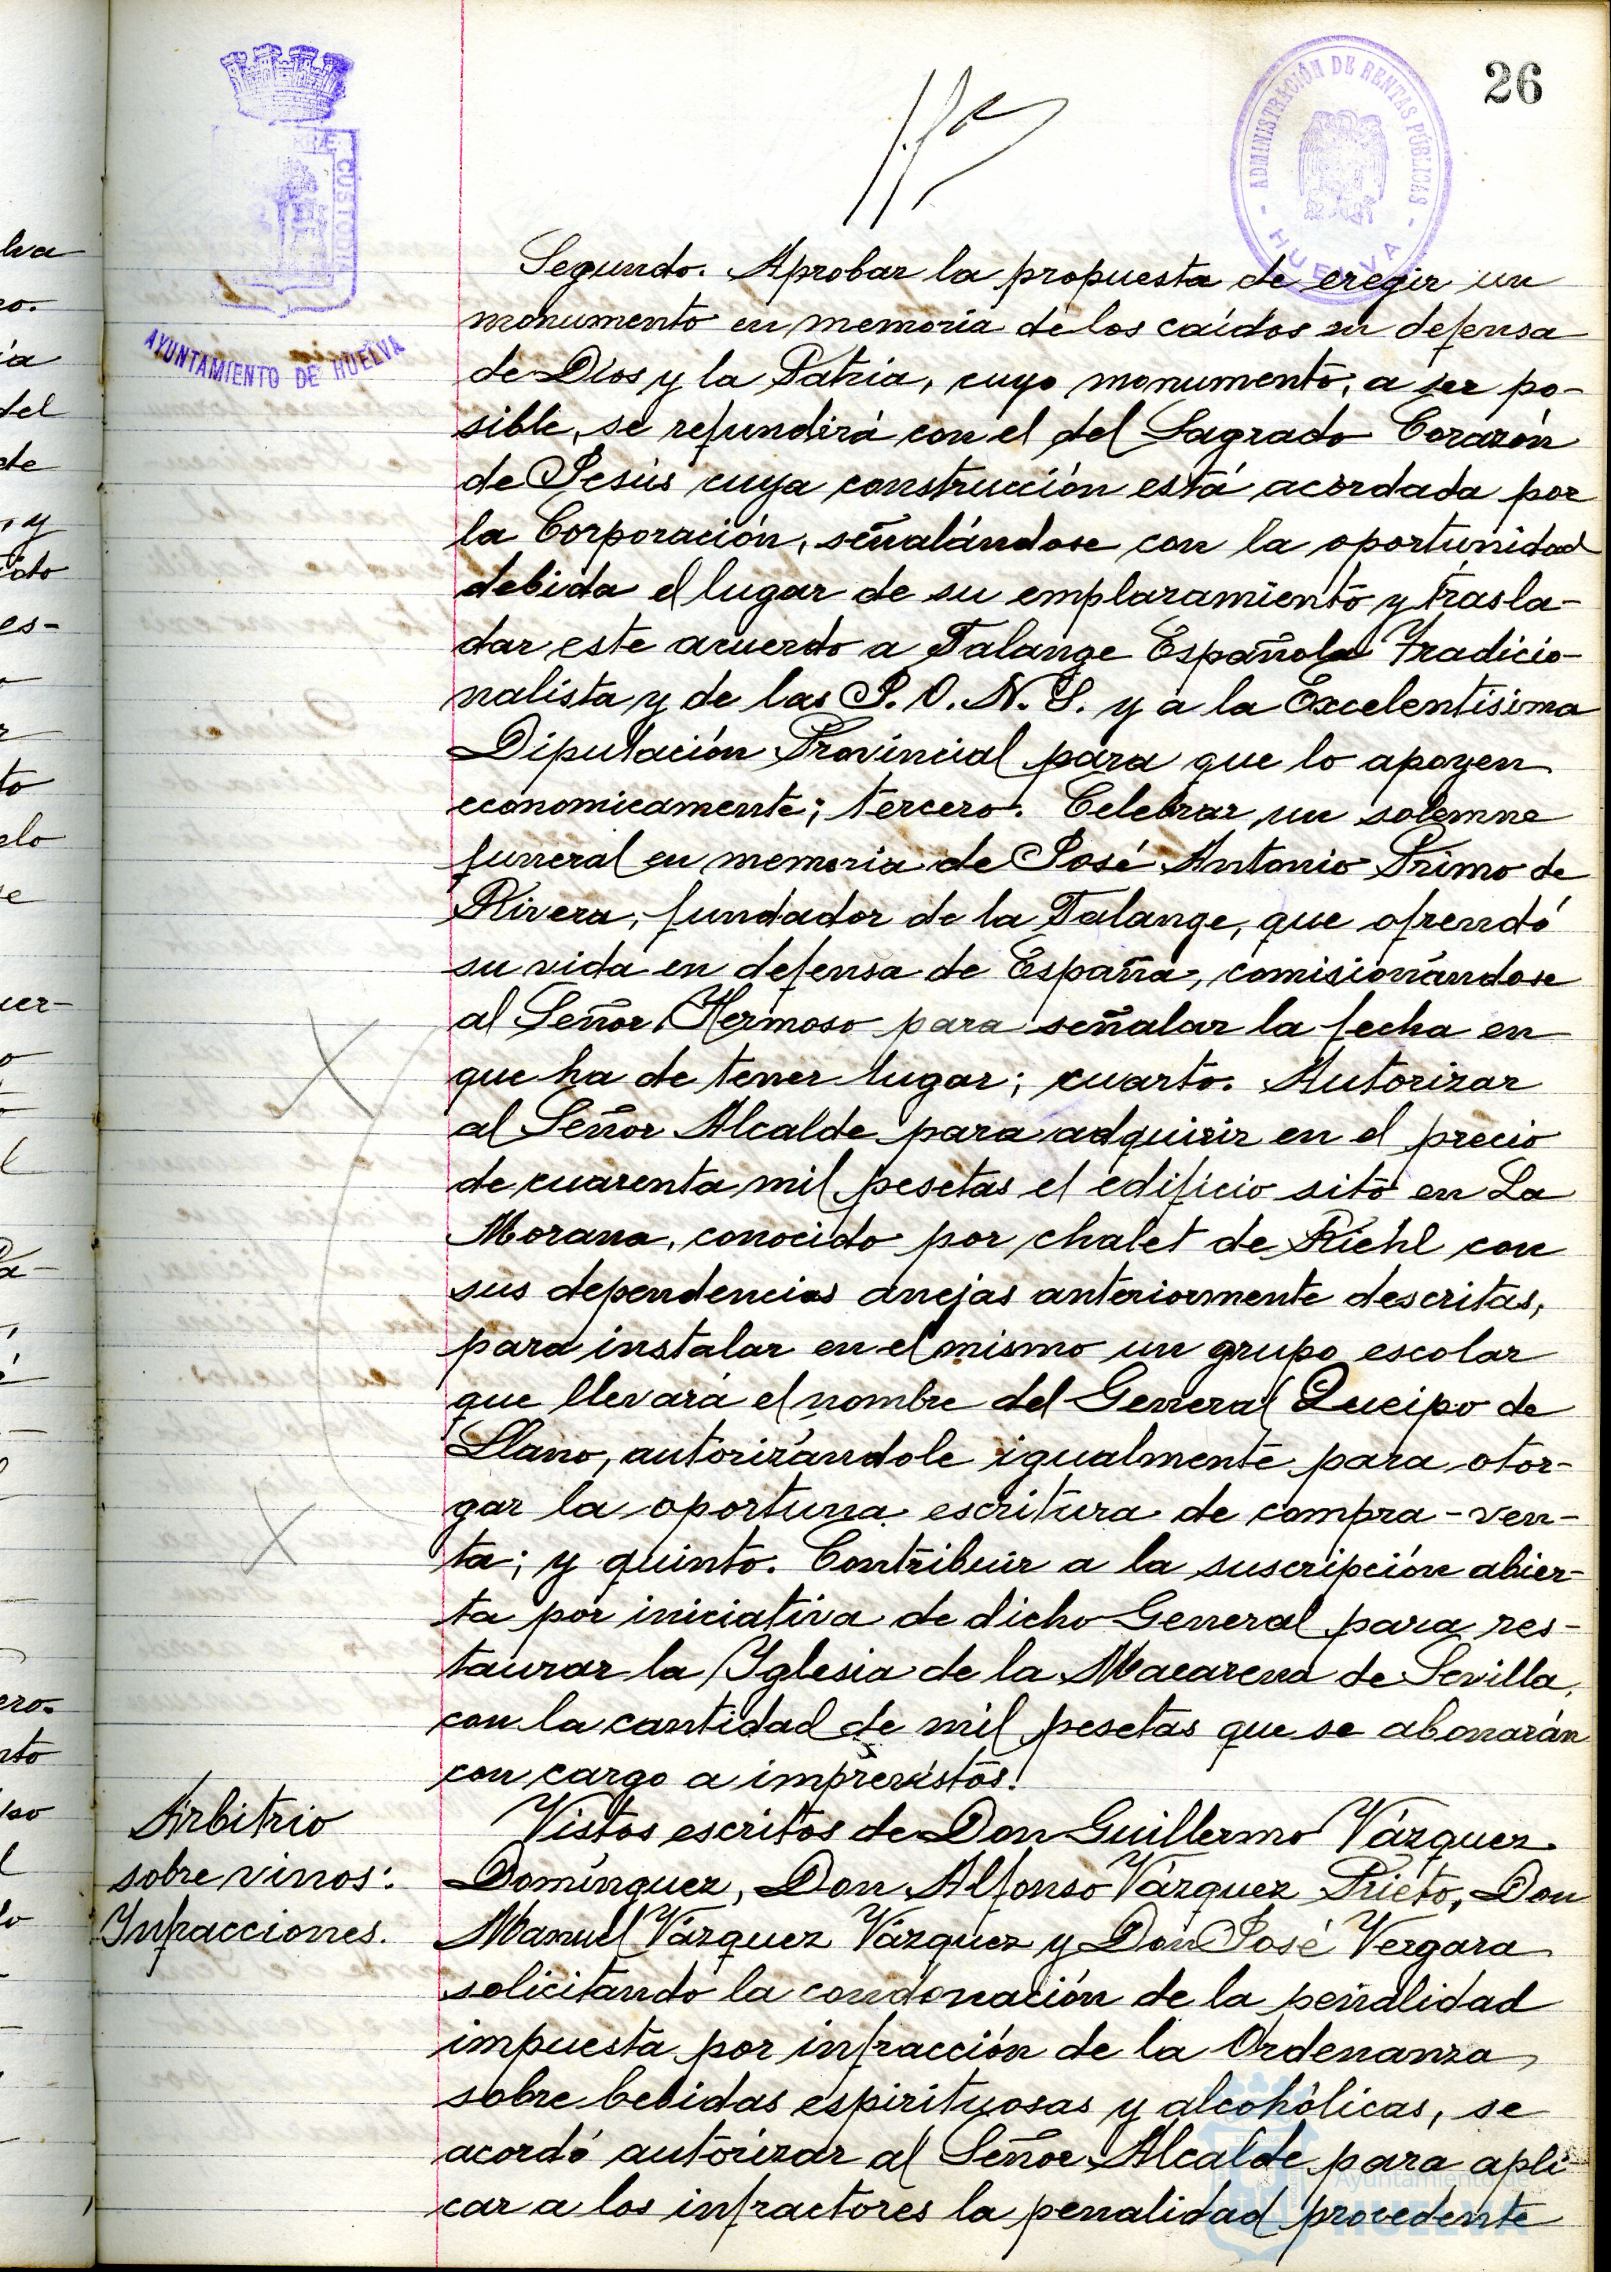 26
PORTUS MARIS ET TERRAE CUSTODIA
AYUNTAMIENTO DE HUELVA
- ADMINISTRACIÓN DE RENTAS PÚBLICAS -
HUELVA
Segundo. Aprobar la propuesta de eregir un
monumento en memoria de los caídos en defensa
de Dios y la Patria, cuyo monumento, a ser po-
sible, se refundirá con el del Sagrado Corazón
de Jesús cuya construcción está acordada por
la Corporación, señalándose con la oportunidad
debida el lugar de su emplazamiento y trasla-
dar este acuerdo a Falange Española Tradicio-
nalista y de las J.O.N.S. y a la Excelentísima
Diputación Provincial para que lo apoyen
economicamente; tercero. Celebrar un solemne
funeral en memoria de José Antonio Primo de
Rivera, fundador de la Falange, que ofrendó
su vida en defensa de España, comisionándose
al Señor Hermoso para señalar la fecha en
que ha de tener lugar; cuarto. Autorizar
al Señor Alcalde para adquirir en el precio
de cuarenta mil pesetas el edificio sito en La
Morana, conocido por chalet de Riehl con
sus dependencias anejas anteriormente descritas,
para instalar en el mismo un grupo escolar
que llevará el nombre del General Queipo de
Llano, autorizándole igualmente para otor-
gar la oportuna escritura de compra-ven-
ta; y quinto. Contribuir a la suscripción abier-
ta por iniciativa de dicho General para res-
taurar la Yglesia de la Macarena de Sevilla,
con la cantidad de mil pesetas que se abonarán
con cargo a imprevistos.
Arbitrio
sobre vinos:
Ynfracciones.
Vistos escritos de Don Guillermo Vázquez
Domínguez, Don Alfonso Vázquez Prieto, Don
Manuel Vázquez Vázquez y Don José Vergara
solicitando la condonación de la penalidad
impuesta por infracción de la Ordenanza
sobre bebidas espirituosas y alcohólicas, se
acordó autorizar al Señor Alcalde para apli-
car a los infractores la penalidad procedente
Ayuntamiento de
HUELVA